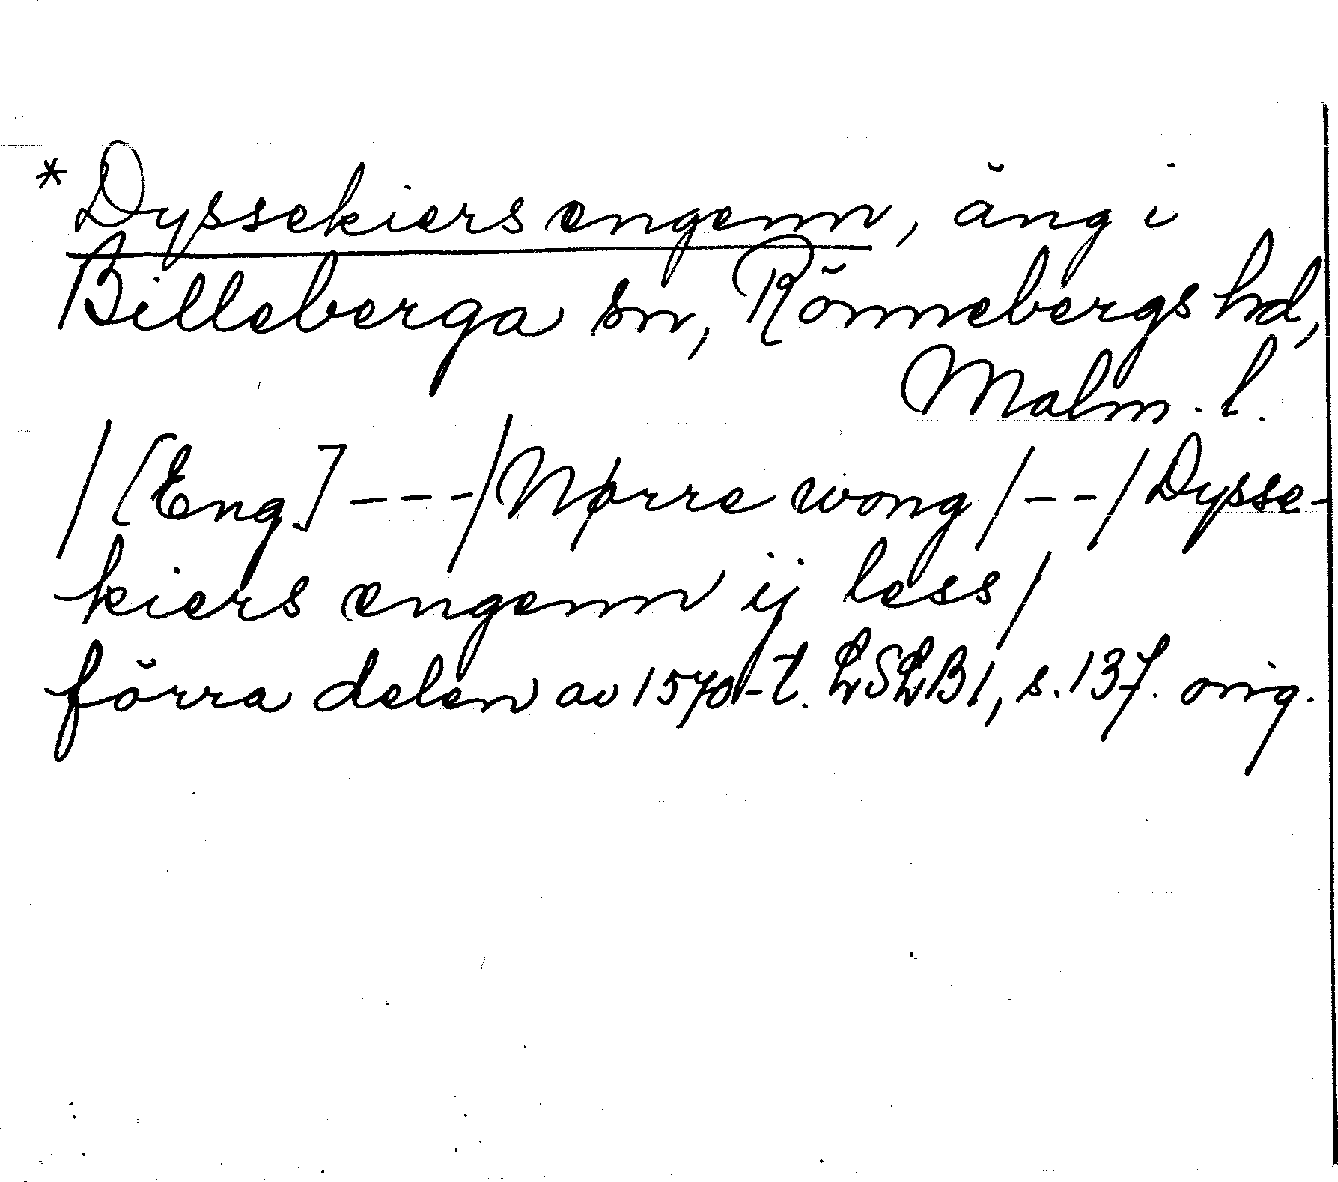 * Dyssekiers engenn, äng i
Billeberga sn, Rönnebergs hd,
Malm. l.
/ [Eng] --- / Nørre wong / -- / Dysse-
kiers engenn ij less /
förra delen av 1570-t. LSLB 1, s. 137. orig.